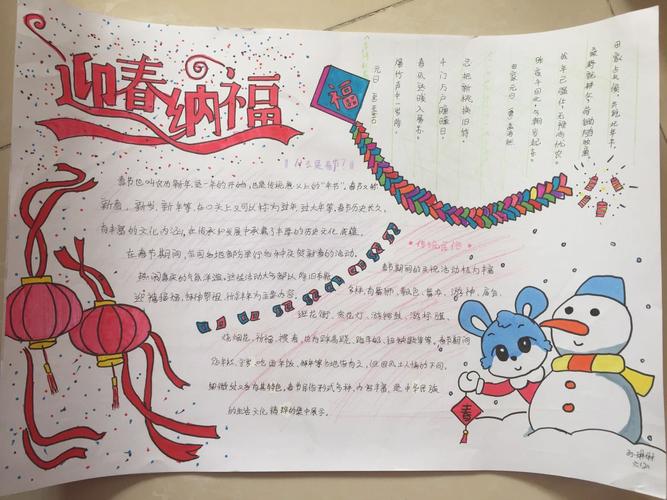 迎春纳福
福
元日 王安石
爆竹声中一岁除，
春风送暖入屠苏。
千门万户曈曈日，
总把新桃换旧符。
田家元日 孟浩然
昨夜斗回北，今朝岁起东。
我年已强仕，无禄尚忧农。
桑野就耕父，荷锄随牧童。
田家占气候，共说此年丰。
什么是春节？
春节也叫农历新年，是一年的开始，也是传统意义上的"年节"，春节又称
新春、新岁、新年等，在口头上又可以称为过年、过大年等，春节历史长久，
有丰富的文化内涵，在传承和发展中承载了丰厚的历史文化底蕴。
在春节期间，全国各地都为举行各种庆贺新春的活动，
热闹喜庆的气氛洋溢，这些活动大多都以除旧布新、
迎福接福、拜神祭祖、祈求丰年为主要内容。
传统习俗
春节期间的庆祝活动极为丰富
多样，有舞狮、飘色、舞龙、游神、庙会、
逛花街、赏花灯、游锣鼓、游标旗、
烧烟花、祈福、
春节期间
贴年红、守岁、吃团年饭、拜年等各地皆有之，但因风土人情的不同，
细微处又各有其特色，春节民俗形式多样、内容丰富，是中华民族
的生活文化精粹的集中展示。
春